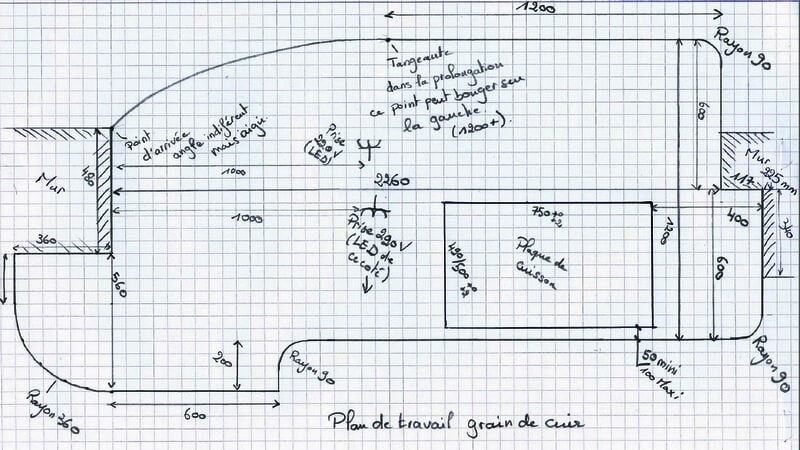 1200
Rayon 90
Tangeante
dans la prolongation
ce point peut bouger sur
la gauche.
(1200+).
600
Point
d'arrivée
angle indiférent
mais aigu.
Prise
220V
(LED)
Mur
480
1000
2260
1000
Prise 220V
(LED de
ce coté)
Mur
225 mm
117
340
360
560
750 +0
490/500
Plaque de
cuisson
400
1200
600
200
Rayon 90
50 mini
100 Maxi
Rayon 90
Rayon 360
600
Plan de travail grain de cuir